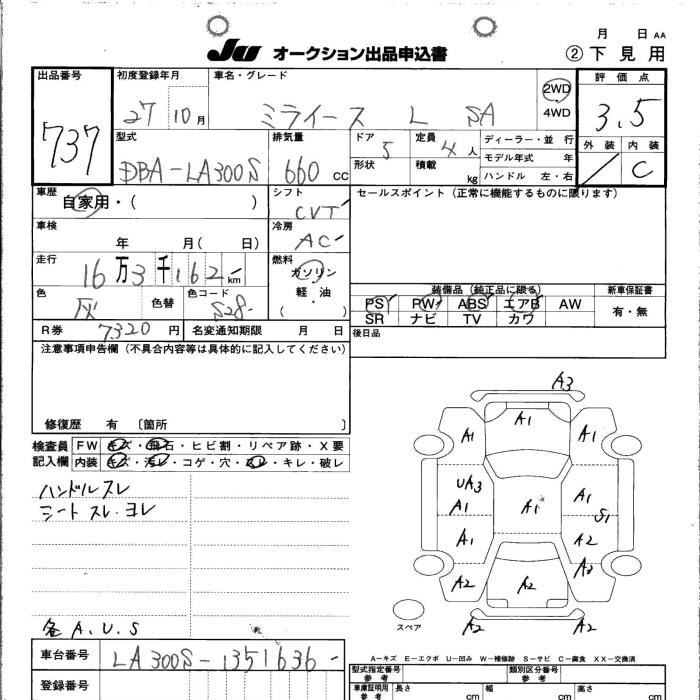 月 日 AA
JU オークション出品申込書
② 下見用
出品番号
737
初度登録年月
27 10月
車名・グレード
ミライース L SA
2WD
4WD
評価点
3.5
型式
DBA-LA300S
排気量
660 CC
ドア
5
定員
4 人
形状
積載
kg
ディーラー・並行
モデル年式 年
ハンドル 左・右
外装 内装
C
車歴
自家用・( )
シフト
CVT
セールスポイント(正常に機能するものに限ります)
車検
年 月( 日)
冷房
AC
走行
16万3千162km
燃料
ガソリン
軽・油
( )
色
灰
色替
色コード
S28
装備品(純正品に限る)
PS PW ABS エアB AW
SR ナビ TV カワ
新車保証書
有・無
R券 7320 円
名変通知期限 月 日
後日品
注意事項申告欄(不具合内容等は具体的に記入してください)
修復歴 有 〔箇所 〕
検査員 FW キズ・飛石・ヒビ割・リペア跡・X要
記入欄 内装 キズ・汚レ・コゲ・穴・スレ・キレ・破レ
ハンドルスレ
シートスレ・ヨレ
各A.U.S
A3
A1
A1
A1
UA3
A1
A1
A1
A1
S1
A2
A2
A2
A2
A2
A2
スペア
A-キズ E-エクボ U-凹み W-補修跡 S-サビ C-腐食 XX-交換済
車台番号
LA300S-1351636
登録番号
型式指定番号
参考
類別区分番号
参考
車庫証明用
参考
長さ cm
幅 cm
高さ cm